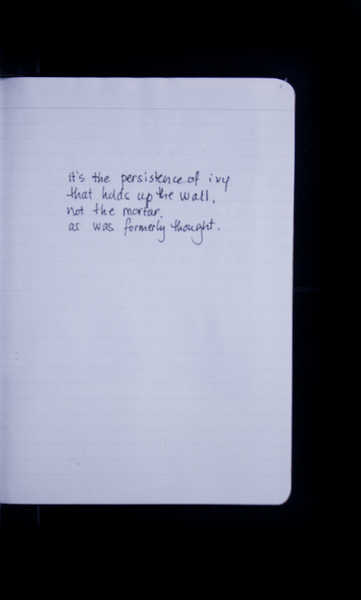 It's the persistence of ivy
that holds up the wall,
not the mortar,
as was formerly thought.